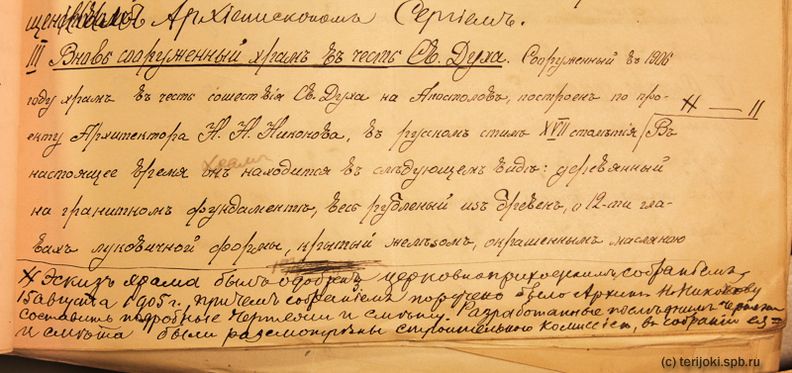 Архіепископомъ Сергіемъ.
III Вновь сооруженный храмъ въ честь Св. Духа. Сооруженный въ 1906
году храмъ въ честь сошествія Св. Духа на Апостоловъ, построенъ по про-
екту Архитектора Н. Н. Никонова, въ русскомъ стилѣ XVII столѣтія / Въ
# — 11
настоящее время онъ находится въ слѣдующемъ видѣ: деревянный
храмъ
на гранитномъ фундаментѣ, весь рубленый изъ бревенъ, о 12-ти гла-
вахъ луковичной формы, крытый желѣзомъ, окрашеннымъ масляною
# Эскизъ храма былъ одобренъ церковноприходскимъ собраніемъ,
15 августа 1905 г., причемъ собраніемъ поручено было Архит. Н. Никонову
составить подробные чертежи и смѣту. Разработанные послѣднимъ чертежи
и смѣта были разсмотрены строительной комиссіей, въ собраніи ея
(c) terijoki.spb.ru